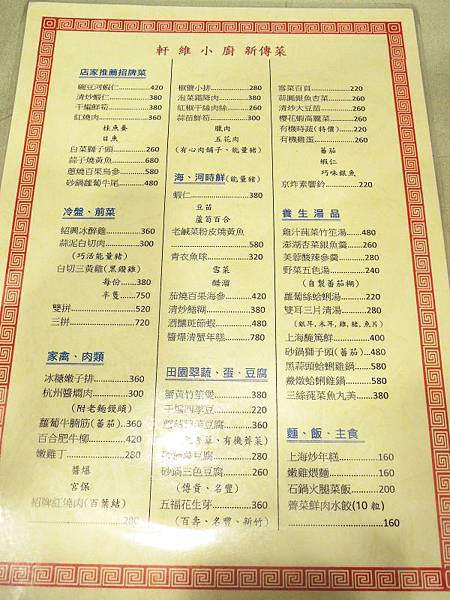 軒維小廚新傳菜
店家推薦招牌菜
豌豆河蝦仁............420
清炒蝦仁............380
干編鮮筍............380
紅燒肉............360
桂魚羹
目魚
白菜獅子頭............260
蒜子燒黃魚............680
蔥燒百果烏參............580
砂鍋蘿蔔牛尾............480
冷盤、前菜
紹興冰醉雞............360
蒜泥白切肉............360
(巧活能量豬)
白切三黃雞(黑鑽雞)
每份............380
半隻............750
雙拼............520
三拼............720
家禽、肉類
冰糖嫩子排............360
杭州醬燜肉............300
(附老麵饅頭)
蘿蔔牛腩筋(蕃茄)..360
百合肥牛柳............420
嫩雞丁............280
醬爆
宮保
招牌紅燒肉(百葉結)
............280
椒鹽小排............280
泡菜霜降肉............380
紅椒干絲肉絲............260
蒜苗鮮筍............300
臘肉
五花肉
(有心肉舖子、能量豬)
海、河時鮮(能量豬)
蝦仁............380
豆苗
蘆筍百合
老鹹菜粉皮燒黃魚
............580
青衣魚球............320
雪菜
醋溜
茄燒百果海參............480
清炒鱔糊............380
酒釀斑節蝦............480
醬爆清蟹年糕............780
田園翠蔬、蛋、豆腐
蟹黃竹笙煲............380
干編四季豆............220
豆腐............260
砂鍋三色豆腐............260
(傳貴、名豐)
五福花生芽............360
(百壽、名豐、新竹)
雪菜百頁............220
蒜園銀魚杏菜............260
清炒大豆苗............260
櫻花蝦高麗菜............260
有機時蔬(特價)............220
有機雞蛋............260
蕃茄
蝦仁
巧味銀魚
京炸素響鈴............220
養生湯品
雞汁蒓菜竹笙湯............480
澎湖杏菜銀魚羹............260
芙蓉酸辣參羹............280
野菜五色湯............240
(自製蕃茄糊)
蘿蔔絲蛤蜊湯............220
雙耳三片清湯............280
(銀耳,木耳,雞,豬,魚片)
上海醃篤鮮............400
砂鍋獅子頭(蕃茄)....480
黑蒜頭蛤蜊雞鍋............580
薇燉蛤蜊雞鍋............580
三絲蒓菜魚丸羹............380
麵、飯、主食
上海炒年糕............160
嫩雞煨麵............160
石鍋火腿菜飯............200
薺菜鮮肉水餃(10粒)
............160